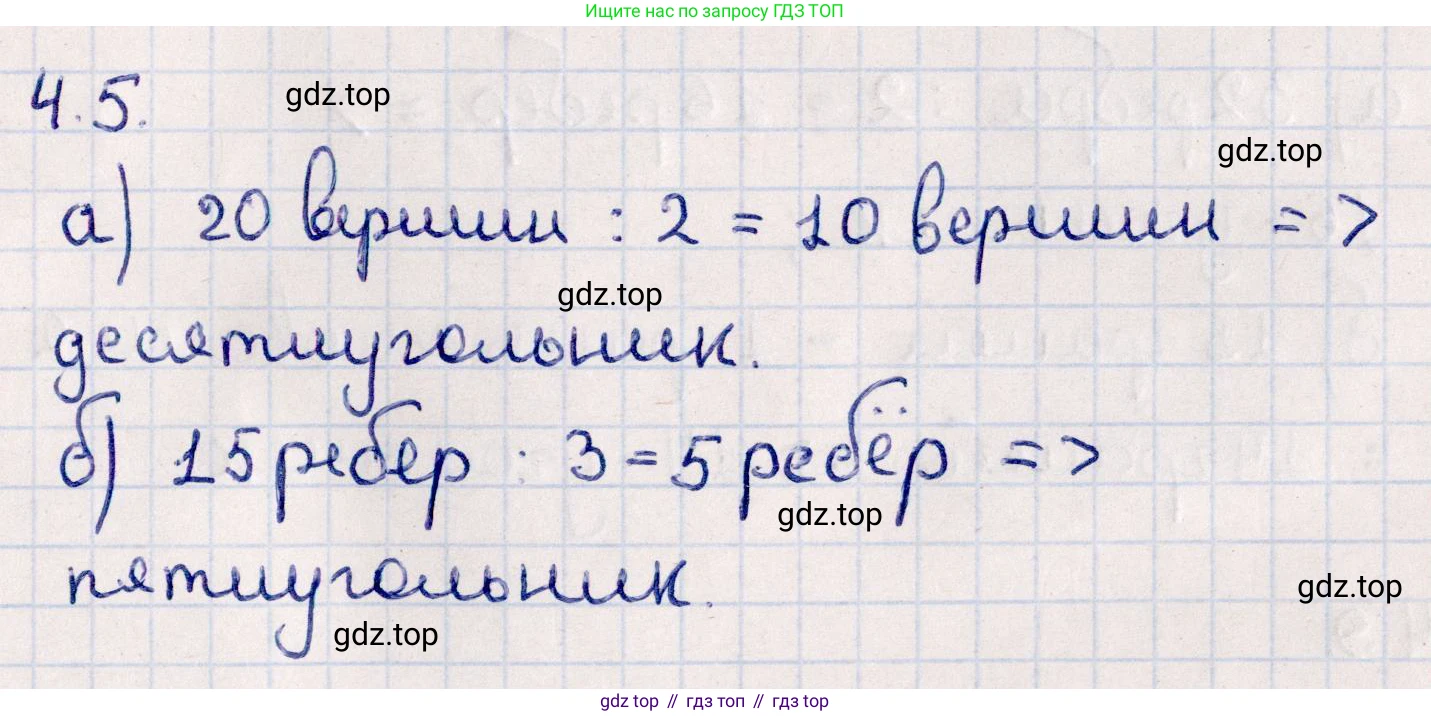 Ищите нас по запросу ГДЗ ТОП
4.5.
gdz.top
gdz.top
а) 20 вершин : 2 = 10 вершин =>
gdz.top
десятиугольник.
б) 15 ребер : 3 = 5 ребёр =>
gdz.top
пятиугольник.
gdz.top
gdz.top
gdz top // гдз топ // gdz top